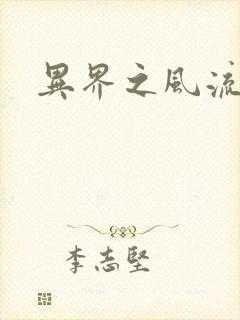 異界之風流
李志堅